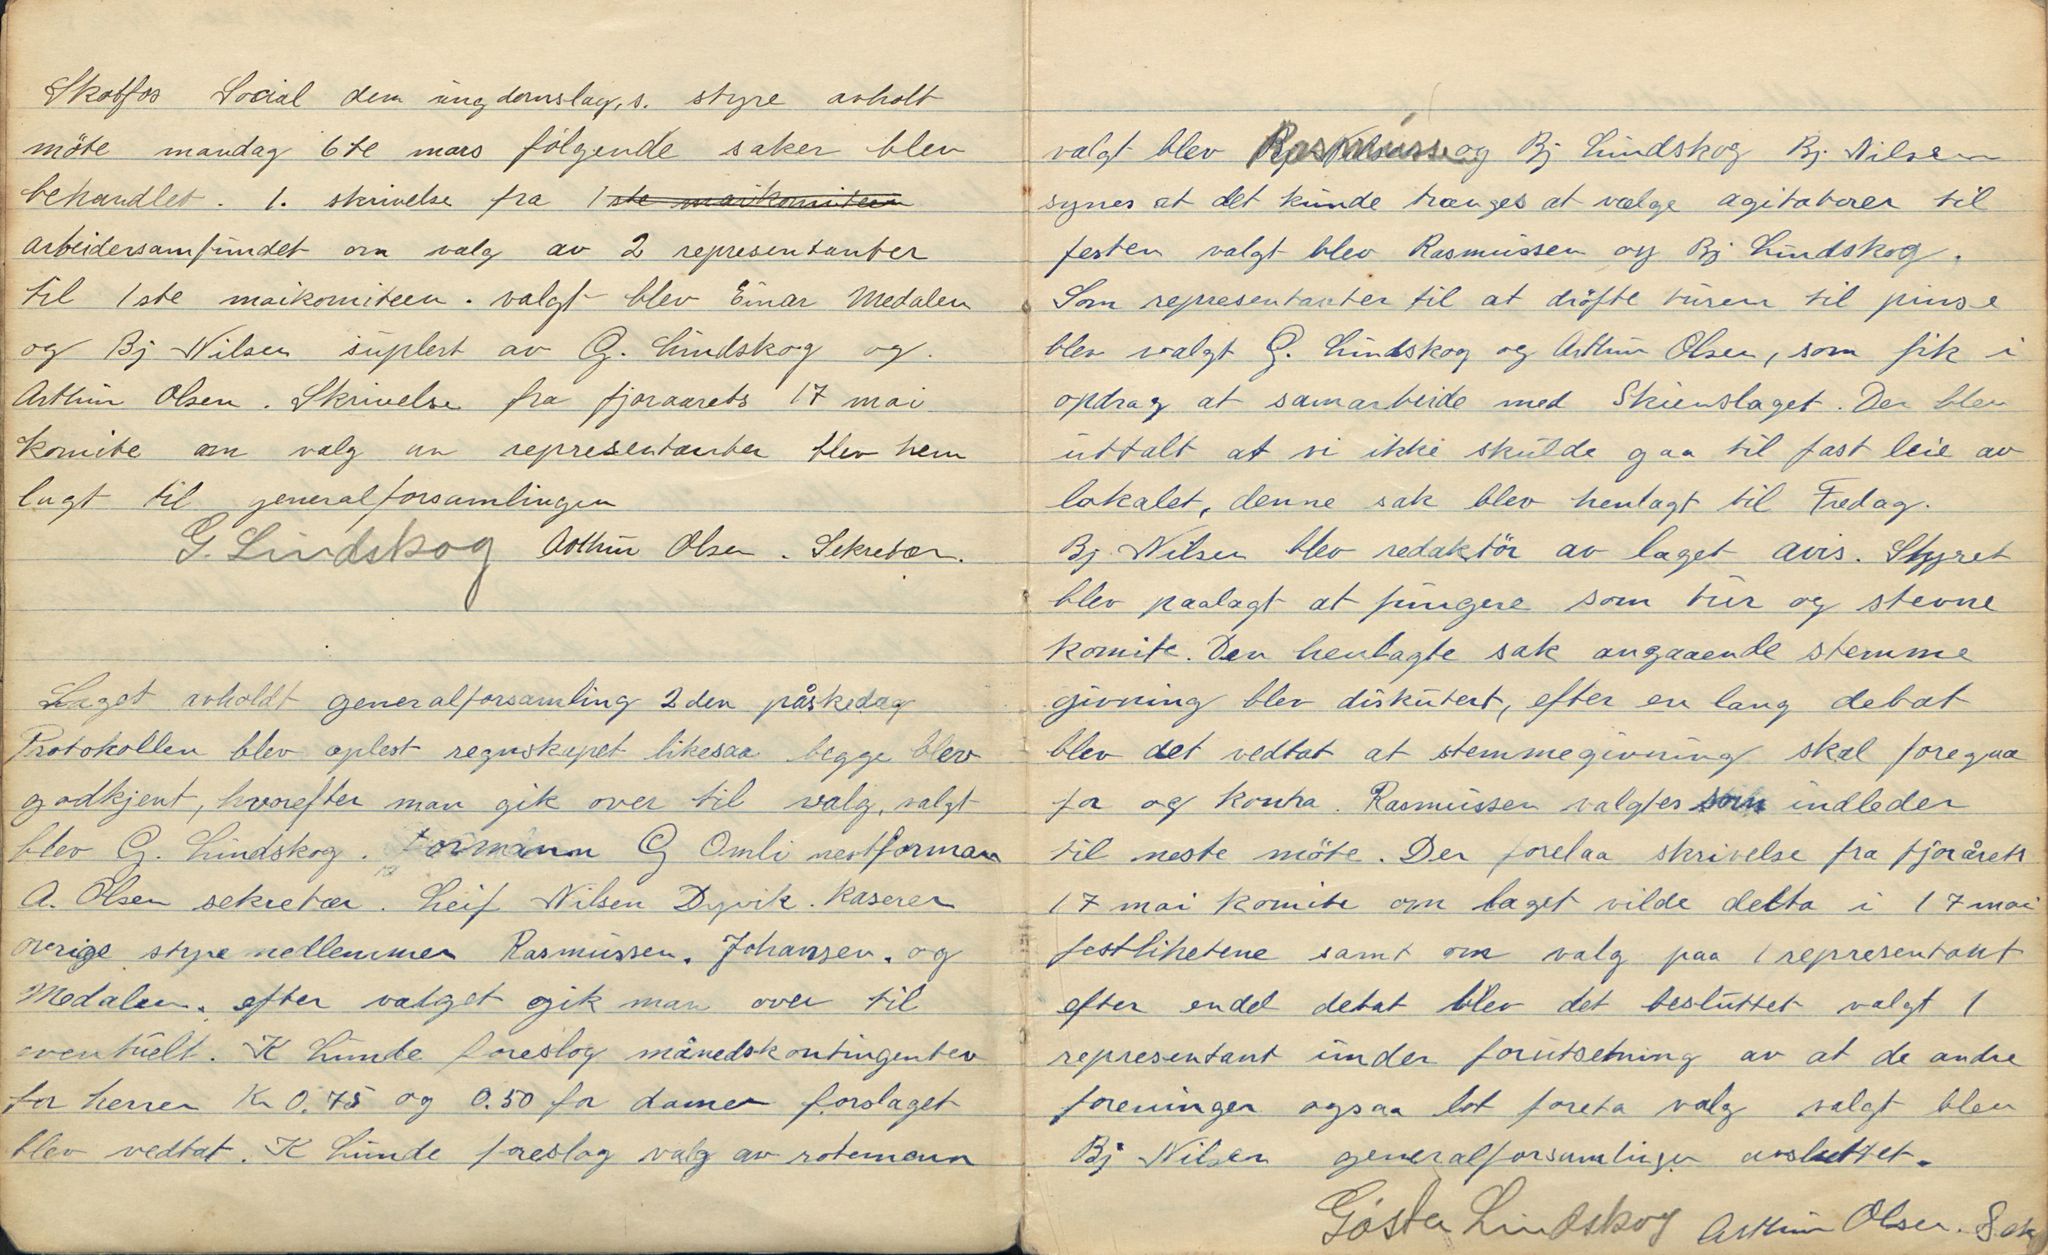 Skotfos Social dem ungdomslag,s. styre avholt
möte mandag 6te mars følgende saker blev
behandlet. 1. skrivelse fra 1ste maikomiteen
arbeidersamfundet om valg av 2 representanter
til 1ste maikomiteen. valgt blev Einar Medalen
og Bj Nilsen suplert av G. Lindskog og.
Arthur Olsen. Skrivelse fra fjoraarets 17 mai
komite om valg av representanter blev hen
lagt til generalforsamlingen
G. Lindskog Arthur Olsen. Sekretær.
Laget avholdt generalforsamling 2den påskedag
Protokollen blev oplest regnskapet likesaa begge blev
godkjent, hvorefter man gik over til valg, valgt
blev G. Lindskog. formann G Omli nestforman
A. Olsen sekretær. Leif Nilsen Dyvik. kaserer
øvrige styremedlemmer Rasmussen. Johansen. og
Medalen. efter valget gik man over til
eventuelt. K Lunde foreslog månedskontingenten
for herrer Kr 0.75 og 0.50 for damer forslaget
blev vedtat. K Lunde foreslog valg av rotemann
valgt blev Rasmussen og Bj Lindskog Bj. Nilsen
synes at det kunde trænges at vælge agitatorer til
festen valgt blev Rasmussen og Bj Lindskog.
Som representanter til at drøfte turen til pinse
blev valgt G. Lindskog og Arthur Olsen, som fik i
opdrag at samarbeide med Skienslaget. Der blev
uttalt at vi ikke skulde gaa til fast leie av
lokalet, denne sak blev henlagt til Fredag.
Bj. Nilsen blev redaktör av laget avis. Styret
blev paalagt at fungere som tur og stevne
komite. Den henlagte sak angaaende stemme
givning blev diskutert, efter en lang debat
blev det vedtat at stemmegivning skal foregaa
for og kontra. Rasmussen valgtes som indleder
til neste möte. Der forelaa skrivelse fra fjorårets
17 mai komite om laget vilde delta i 17 mai
festlihetene samt om valg paa 1 representant
efter endel debat blev det besluttet valgt 1
representant under forutsetning av at de andre
foreninger ogsaa lot foreta valg valgt blev
Bj Nilsen generalforsamlingen avsluttet.
Gösta Lindskog Arthur Olsen. Sek